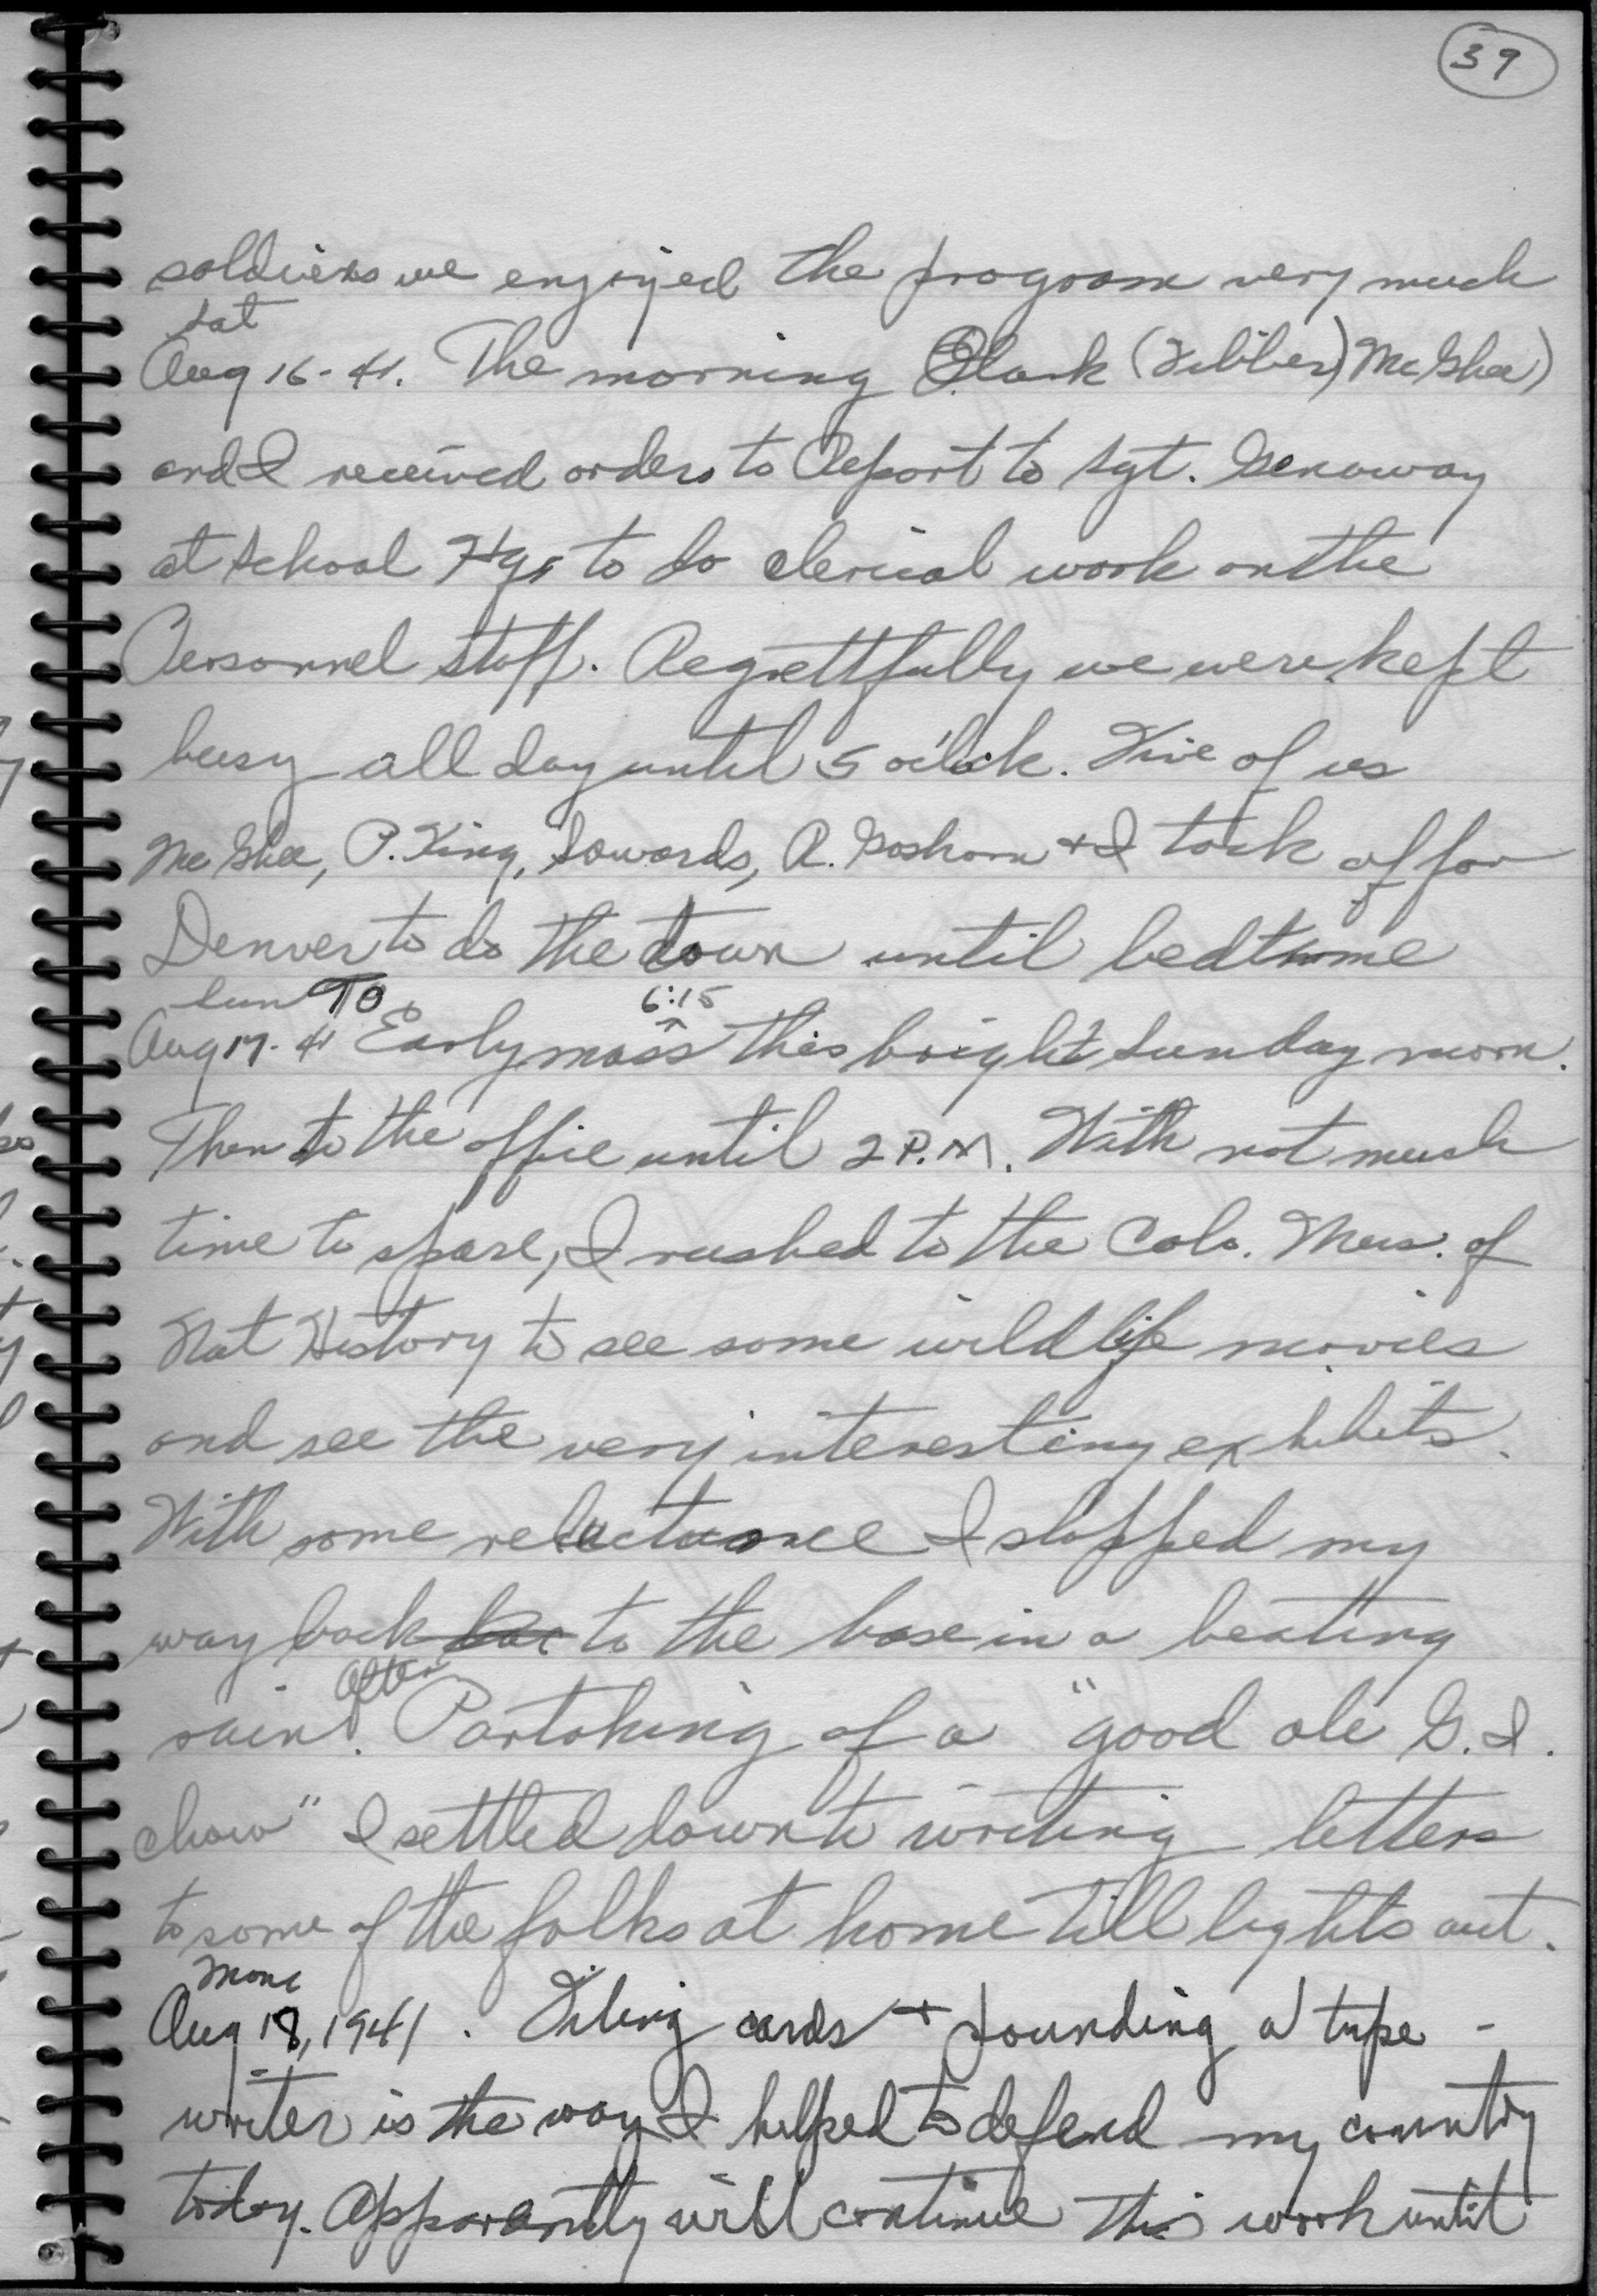 39
soldiers we enjoyed the program very much
Sat
Aug 16-41. The morning Clark (Fibber) McGhee)
and I received orders to Report to Sgt. Genoway
at School Hqs to do clerical work on the
Personnel staff. Regrettfully we were kept
busy all day until 5 o'clock. Five of us
McGhee, P. King, Sowards, R. Goshorn + I took off for
Denver to do the town until bedtime
Sun To 6:15
Aug 17-41 Early mass this bright Sunday morn.
Then to the office until 2 P.M. With not much
time to spare, I rushed to the Colo. Mus. of
Nat History to see some wildlife movies
and see the very interesting exhibits.
With some reluctance I slopped my
way back bac to the base in a beating
After
rain. Partaking of a "good ole G.I.
chow" I settled down to writing letters
to some of the folks at home till lights out.
Mon
Aug 18, 1941. Filing cards + pounding a type-
writer is the way I helped to defend my country
today. Apparantly will continue this work until